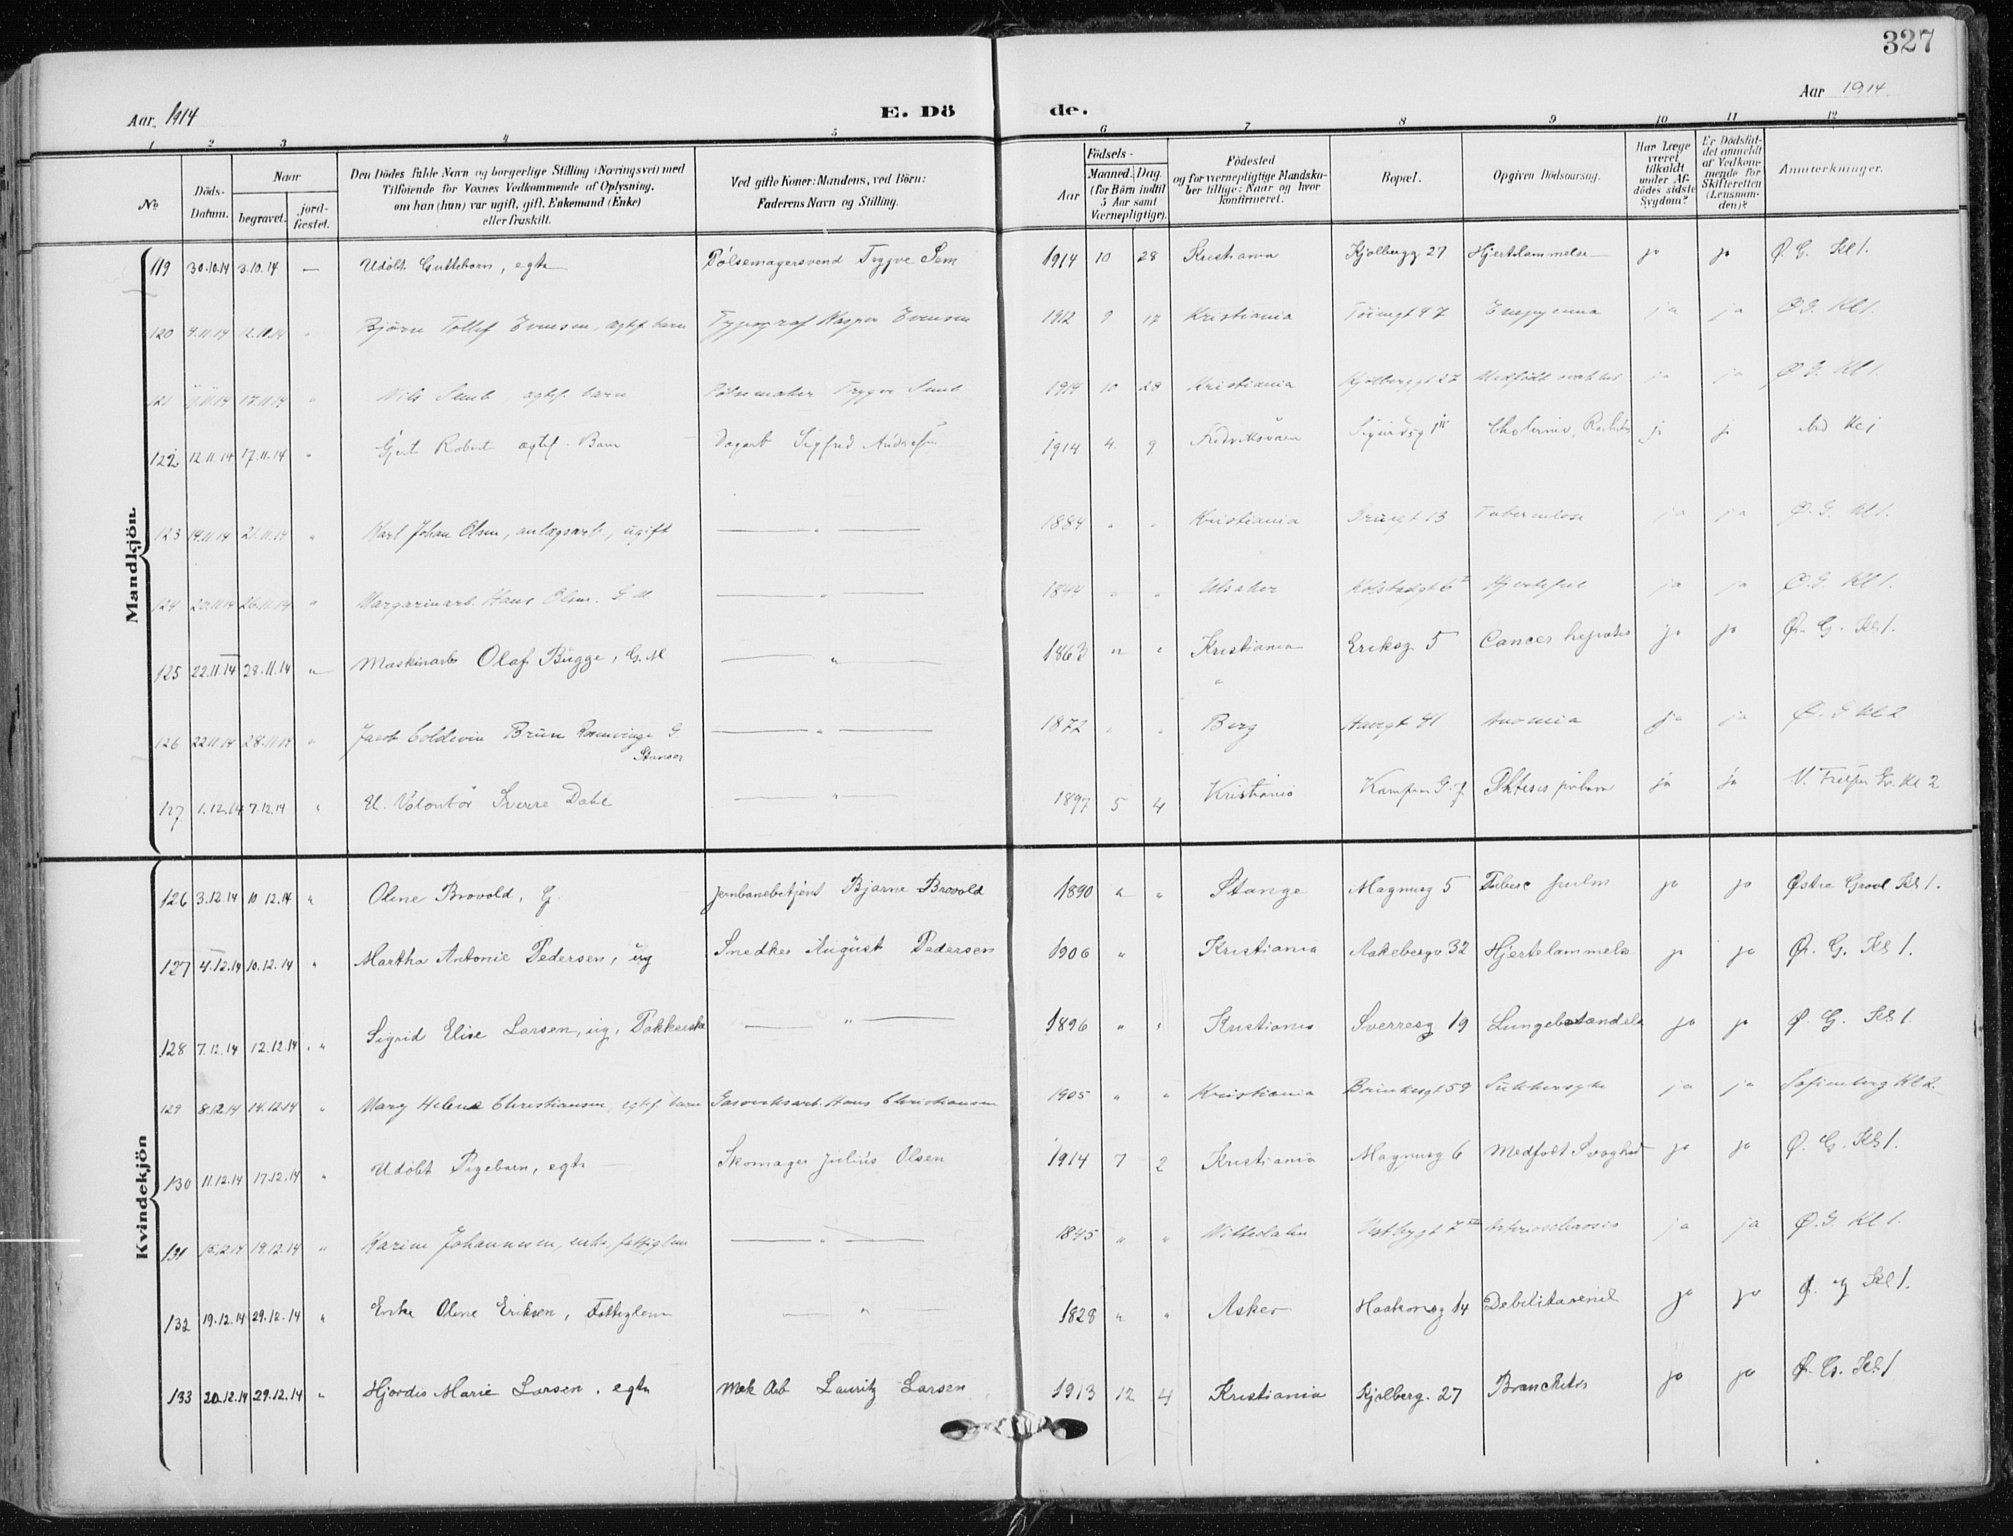 327
Aar 1914
E. Dö de.
Aar 1914
1 2 3 4 5 6 7 8 9 10 11 12
No
Döds-Datum.
Naar
begravet.
jord-fæstet.
Den Dödes fulde Navn og borgerlige Stilling (Næringsvei) med
Tilföiende for Voxnes Vedkommende af Oplysning,
om han (hun) var ugift, gift, Enkemand (Enke)
eller fraskilt.
Ved gifte Koner: Mandens, ved Börn:
Faderens Navn og Stilling.
Födsels-
Aar
Maaned. Dag.
(for Börn indtil
5 Aar samt
Værnepligtige).
Födested
og for værnepligtige Mandska-
ber tillige: Naar og hvor
konfirmeret.
Bopæl.
Opgiven Dödsaarsag.
Har Læge
været
tilkaldt
under Af-
dödes sidste
Sygdom?
Er Dödsfal-
det anmeldt
af Vedkom-
mende for
Skifteretten
(Lensman-
den)?
Anmærkninger.
Mandkjön.
119 30.10.14 3.10.14 — Udöbt Guttebarn, egte Pölsemagersvend Trygve Sem 1914 10 28 Kristiania Kjölbergg 27 Hjertelammelse ja ja Ø. G. Kl 1.
120 9.11.14 12.11.14 " Björn Tollef Evensen, egtef. barn Typograf Kasper Evensen 1912 9 17 Kristiania 47 Empyema ja ja Ø. G. Kl 1.
121 17.11.14 " Nils Semb, egtef. barn Pölsemaker Trygve Semb 1914 10 28 Kristiania Kjölberggt 27 Medfödt ja ja Ø. G. Kl 1.
122 12.11.14 17.11.14 " Gjert Robert egtef. Barn Sigfred 1914 4. 9 Fredriksværn ja ja Kl 1
123 14.11.14 21.11.14 " Karl Johan Olsen, anlægsarb., ugift — " — 1884 " " Kristiania 13 Tuberculose ja ja Ø. G. Kl 1.
124 20.11.14 26.11.14 " Margarinarb. Hans Olsen. G M — " — 1844 " " Ulsaker ja ja Ø. G. Kl 1.
125 22.11.14 28.11.14 " Maskinarb Olaf Bugge, G. M — " — 1863 " " Kristiania Eriksg. 5 Cancer hepatis ja ja Ø. G. Kl 1.
"
126 22.11.14 28.11.14 " Jacob Coldevin Brun Rosenvinge G — " — 1872 " " Berg 41 ja ja Ø. G Kl 2
127 1.12.14 7.12.14 " U. Volontör Sverre Dahl — " — 1897 5 4 Kristiania Phtisis pulm ja ja Kl 2
Kvindekjön
126 3.12.14 10.12.14 " Oline Brovold, G. Jernbanebetjent Bjarne Brovold 1890 " " Stange Magnusg 5 Tuberc pulm ja ja Østre Gravl Kl 1.
127 4.12.14 10.12.14 " Martha Antonie Pedersen, ug Snedker August Pedersen 1906 " Kristiania Aakebergv 32 Hjertelammelse ja ja Ø. G. Kl 1.
128 7.12.14 12.12.14 " Sigrid Elise Larsen, ug, Pakkerske — " — 1896 " " Kristiania Sverresg 19 Lungebetændelse ja ja Ø. G. Kl 1.
129 8.12.14 14.12.14 " Mary Helene Christiansen, egtef. barn Gasverksarb. Hans Christiansen 1905 " " Kristiania Brinkengt 59 Sukkersyke ja ja Sofienberg Kl 2.
130 11.12.14 17.12.14 " Udöbt Pigebarn, egte — Skomager Julius Olsen 1914 7 2 Kristiania Magnusg 6 Medfödt Svaghed ja ja Ø. G. Kl 1.
131 15.12.14 19.12.14 " Karine Johannesen, enke, fattiglem — " — 1845 " " Arteriosclerosis ja ja Ø. G. Kl 1.
132 19.12.14 29.12.14 " Enke Oline Eriksen, Fattiglem — " — 1828 " " Asker Haakonsg 14 Debilitas senil ja ja Ø. G Kl 1.
133 20.12.14 29.12.14 " Hjördis Marie Larsen, egte Mek Arb Lauritz Larsen 1913 12 4 Kristiania Kjölberg. 27 Bronchitis ja ja Ø. G. Kl 1